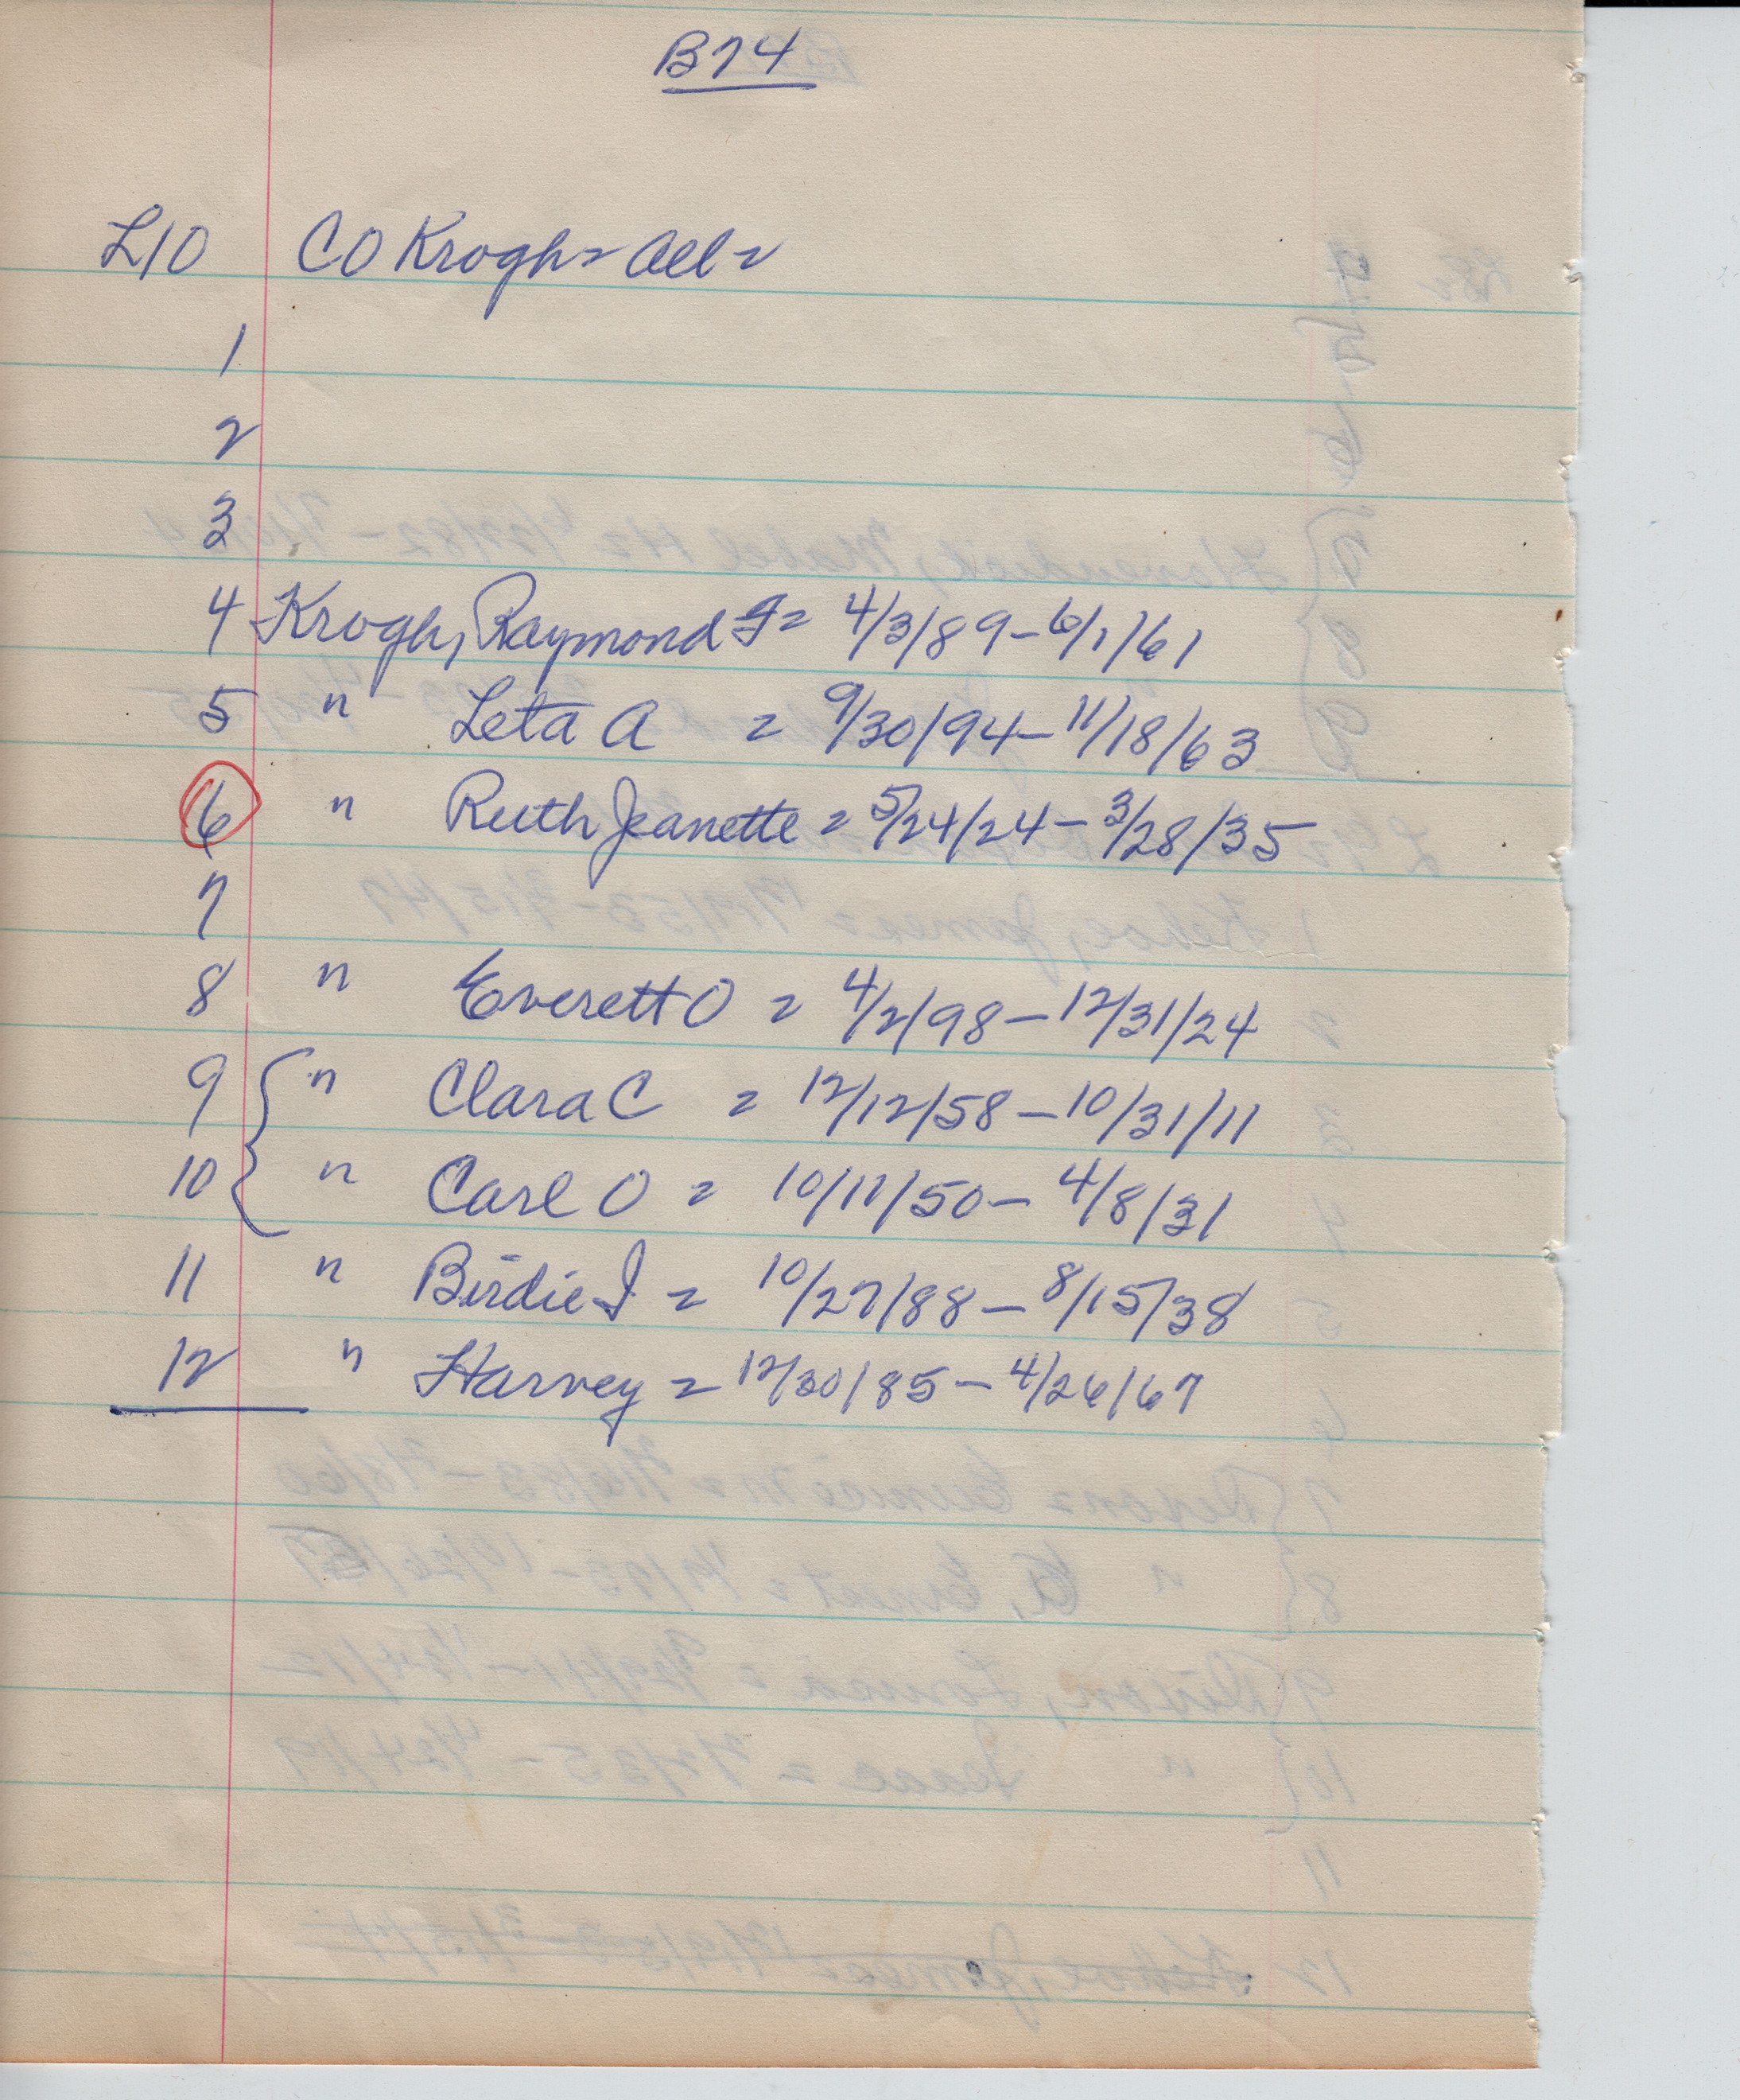 B74
L10 CO Krogh = All =
1
2
3
4 Krogh, Raymond J = 4/3/89 - 6/1/61
5 " Leta A = 9/30/94 - 11/18/63
6 " Ruth Jeanette = 5/24/24 - 3/28/35
7
8 " Everett O = 4/2/98 - 12/31/24
9 " Clara C = 12/12/58 - 10/31/11
10 " Carl O = 10/11/50 - 4/8/31
11 " Birdie I = 10/27/88 - 8/15/38
12 " Harvey = 12/30/85 - 4/26/67